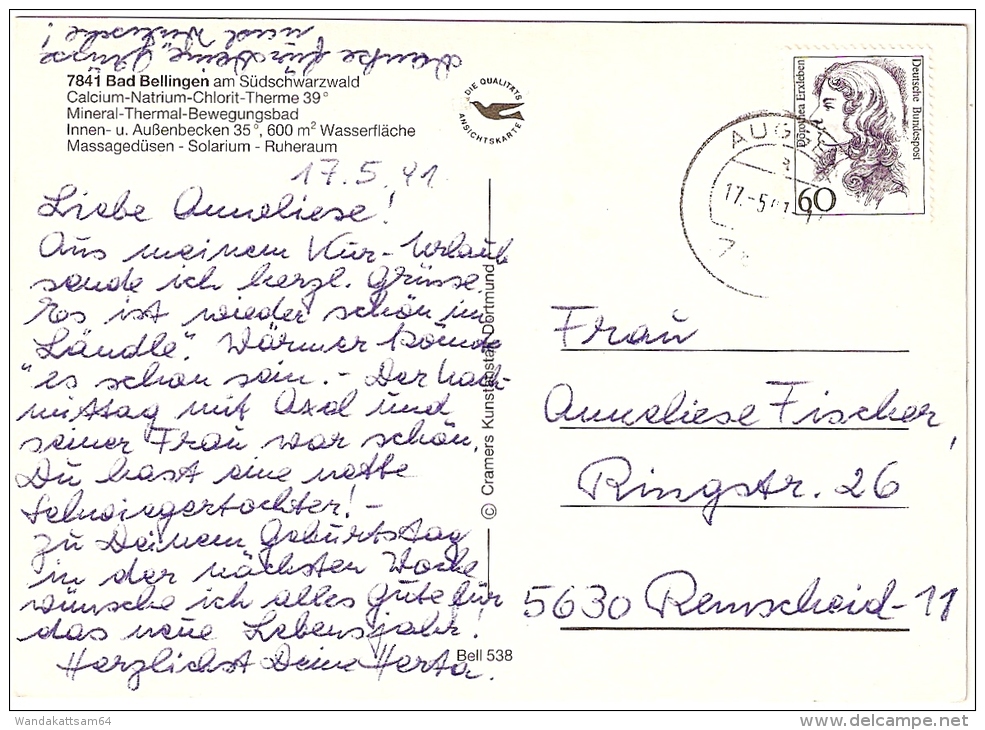 Danke für Deine Grüße
und Wünsche!
7841 Bad Bellingen am Südschwarzwald
Calcium-Natrium-Chlorit-Therme 39°
Mineral-Thermal-Bewegungsbad
Innen- u. Außenbecken 35°, 600 m² Wasserfläche
Massagedüsen - Solarium - Ruheraum
DIE QUALITÄTS
ANSICHTSKARTE
17.5.91.
Liebe Anneliese!
Aus meinem Kur-Urlaub
sende ich herzl. Grüsse.
Es ist wieder schön im
"Ländle". Wärmer könnte
es schon sein. - Der Nach-
mittag mit Axel und
seiner Frau war schön,
Du hast eine nette
Schwiegertochter! -
Zu Deinem Geburtstag
in der nächsten Woche
wünsche ich alles Gute für
das neue Lebensjahr!
Herzlichst Deine Herta.
© Cramers Kunstanstalt, Dortmund
Bell 538
Dorothea Erxleben
Deutsche Bundespost
60
17.-5.
Frau
Anneliese Fischer,
Ringstr. 26
5630 Remscheid-11
Wandakattsam64
delcampe.net